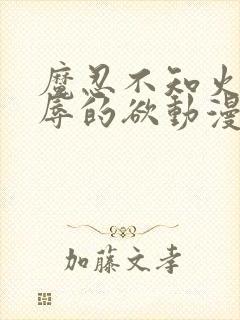 魔忍不知火
辱的欲動漫
加藤文孝